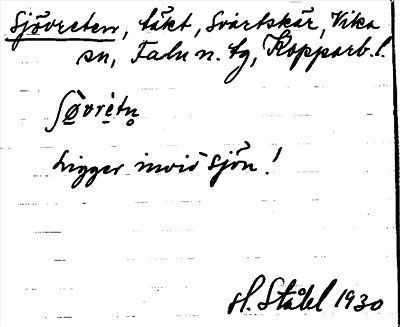 Sjövreten, täkt, Svartskär, Vika
sn, Falu n. tg, Kopparb. l.
ʃö̀vrètn̥
Ligger invid sjön!
H. Ståhl 1930